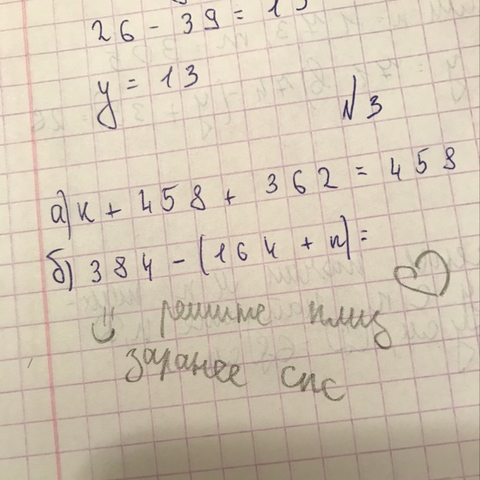 26 - 39 = 13
y = 13
N3
а) к + 458 + 362 = 458
б) 384 - (164 + n) =
решите плиз
заранее спс